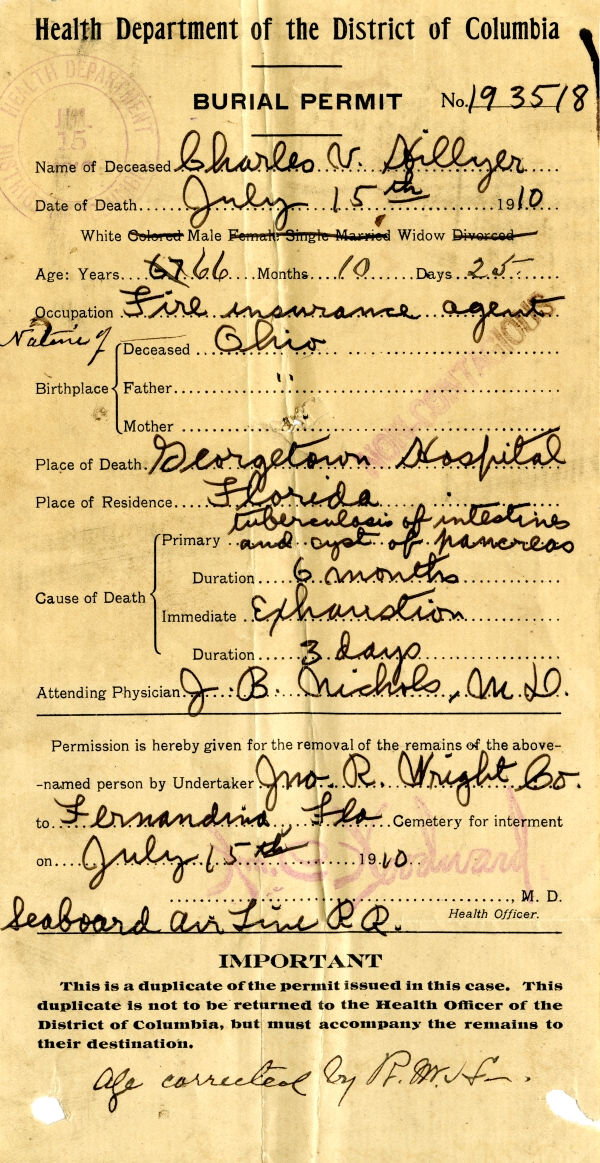 Health Department of the District of Columbia
HEALTH DEPARTMENT
15
BURIAL PERMIT No. 193518
Name of Deceased Charles V. Hillyer
Date of Death July 15th 1910
White Colored Male Female Single Married Widow Divorced
Age: Years 67 66 Months 10 Days 25
Occupation Fire insurance agent
Native of
Deceased Ohio
Birthplace Father "
Mother
NON-CONTAGIOUS
Place of Death Georgetown Hospital
Place of Residence Florida
tuberculosis of intestines
Primary and cyst of pancreas
Duration 6 months
Cause of Death
Immediate Exhaustion
Duration 3 days
Attending Physician J. B. Nichols, M.D.
Permission is hereby given for the removal of the remains of the above-
-named person by Undertaker Jno. R. Wright Co.
to Fernandina, Fla Cemetery for interment
on July 15th 1910
Woodward
, M. D.
Health Officer.
Seaboard Air Line R.R.
IMPORTANT
This is a duplicate of the permit issued in this case. This
duplicate is not to be returned to the Health Officer of the
District of Columbia, but must accompany the remains to
their destination.
Age corrected by